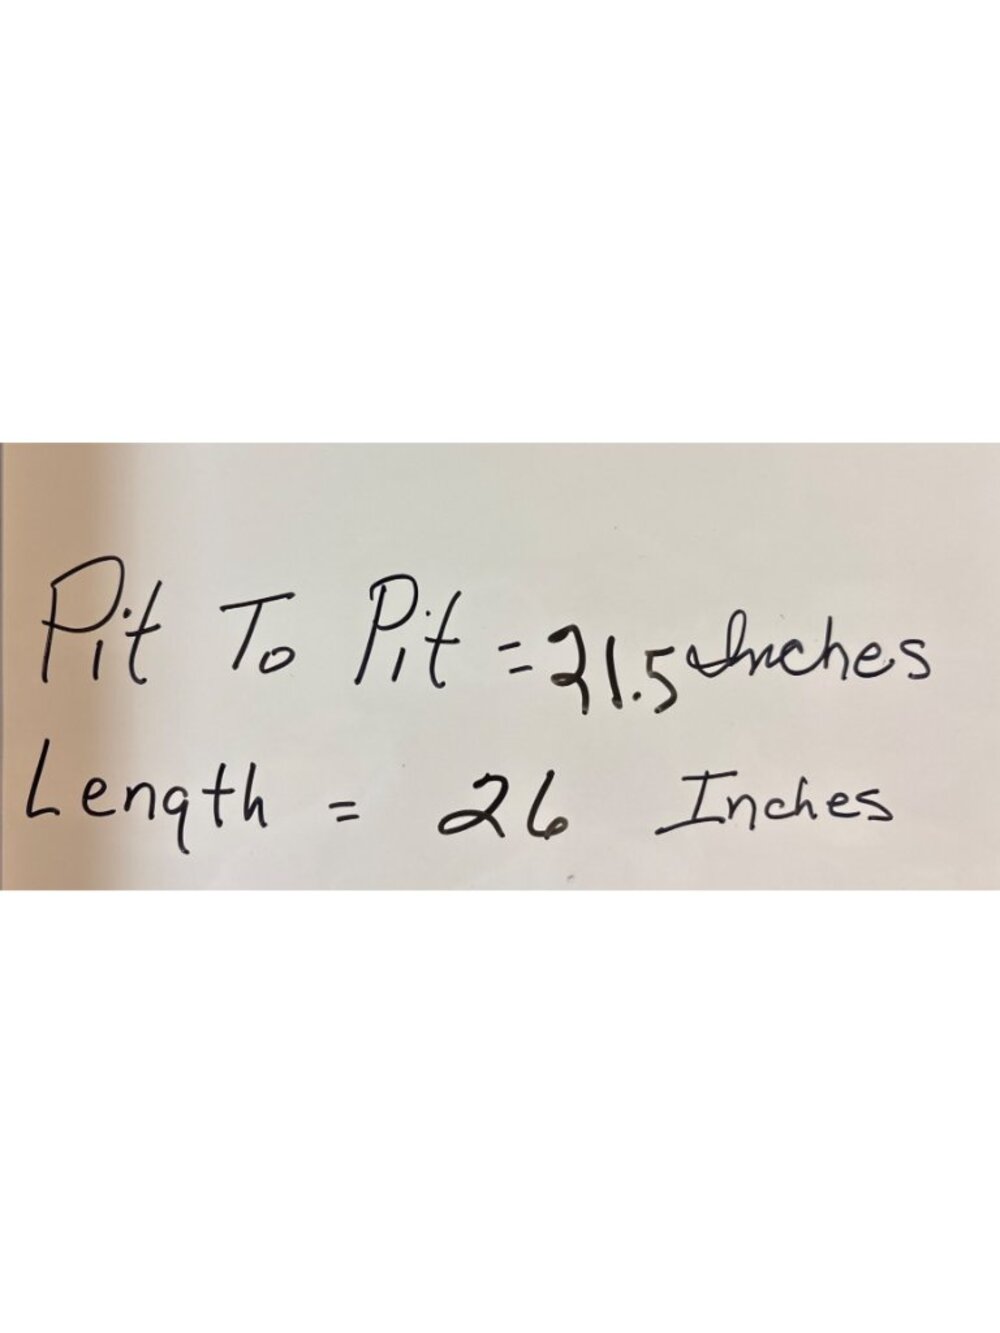 Pit To Pit = 21.5 Inches
Length = 26 Inches